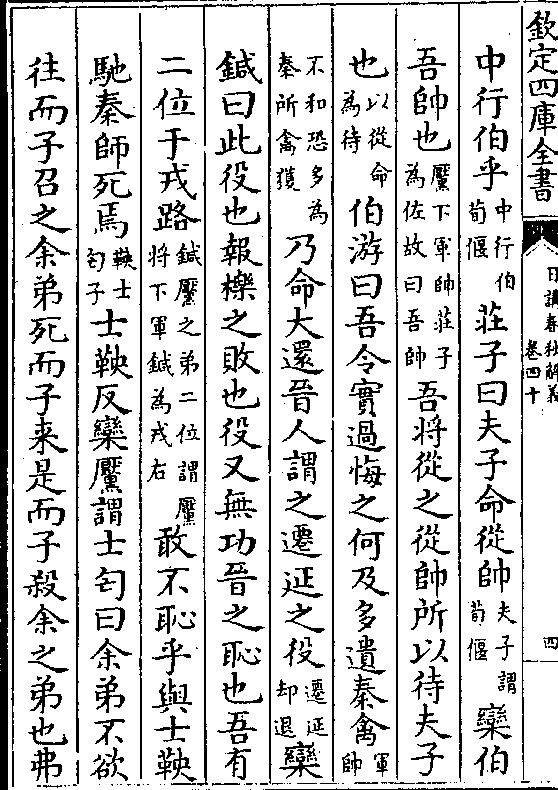 欽定四庫全書
日講春秋解義
卷四十
四
中行伯乎中行伯荀偃莊子曰夫子命從帥夫子謂荀偃欒伯
吾帥也黶下軍帥莊子為佐故曰吾帥吾將從之從帥所以待夫子
也以從命為待伯游曰吾令實過悔之何及多遺秦禽軍帥
不和恐多為秦所禽獲乃命大還晉人謂之遷延之役遷延却退欒
鍼曰此役也報櫟之敗也役又無功晉之恥也吾有
二位于戎路鍼黶之弟二位謂黶將下軍鍼為戎右敢不恥乎與士鞅
馳秦師死焉鞅士匄子士鞅反欒黶謂士匄曰余弟不欲
往而子召之余弟死而子来是而子殺余之弟也弗